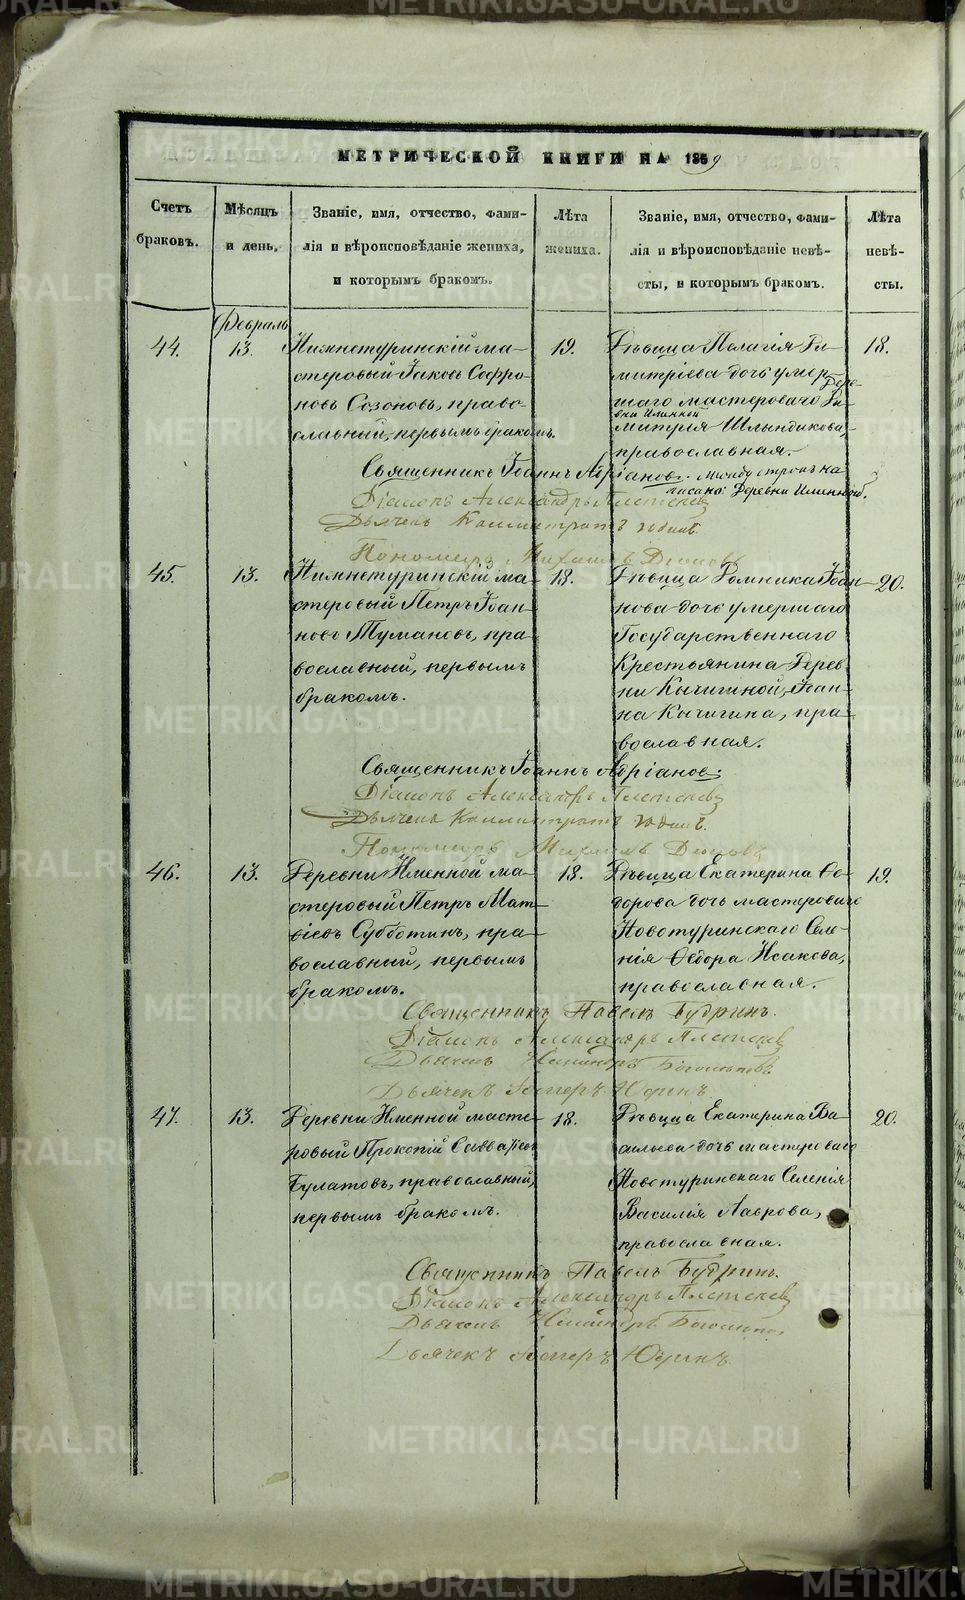 МЕТРИЧЕСКОЙ КНИГИ НА 1869
Счетъ браковъ.
Мѣсяцъ и день.
Званіе, имя, отчество, фами-
лія и вѣроисповѣданіе жениха,
и которымъ бракомъ.
Лѣта
жениха.
Званіе, имя, отчество, фами-
лія и вѣроисповѣданіе невѣ-
сты, и которымъ бракомъ.
Лѣта
невѣ-
сты.
Февраль
44.
13.
Нижнетуринскій ма-
стеровый Іаковъ Софро-
новъ Созоновъ, право-
славный, первымъ бракомъ.
19.
Дѣвица Пелагія Ди-
митріева дочь умер-
шаго мастероваго Ди-
Дере-
вни Именной
митрія Шлындикова,
православная.
18.
Священникъ Іоаннъ Адріановъ. Между строкъ на
писано: Деревни Именной.
Діаконъ Александръ Плетеневъ
Дьячекъ Каллистратъ
Пономарь Михаилъ
45.
13.
Нижнетуринскій ма-
стеровый Петръ Іоан-
новъ Тумановъ, пра-
вославный, первымъ
бракомъ.
18.
Дѣвица Домника Іоан-
нова дочь умершаго
Государственнаго
Крестьянина Дерев-
ни Кычигиной, Іоан-
на Кычигина, пра-
вославная.
20.
Священникъ Іоаннъ Адріановъ.
Діаконъ Александръ Плетеневъ
Дьячекъ Каллистратъ
Пономарь Михаилъ
46.
13.
Деревни Именной ма-
стеровый Петръ Мат-
вѣевъ Субботинъ, пра-
вославный, первымъ
бракомъ.
18.
Дѣвица Екатерина Ѳе-
дорова дочь мастероваго
Новотуринскаго Селе-
нія Ѳедора Исакова,
православная.
19.
Священникъ Павелъ Будринъ.
Діаконъ Александръ Плетеневъ
Дьячекъ
Дьячекъ
47.
13.
Деревни Именной масте-
ровый Прокопій Савватіевъ
Булатовъ, православный,
первымъ бракомъ.
18.
Дѣвица Екатерина Ва-
сильева дочь мастероваго
Новотуринскаго Селенія
Василія Лаврова,
православная.
20.
Священникъ Павелъ Будринъ.
Діаконъ Александръ Плетеневъ
Дьячекъ
Дьячекъ
METRIKI.GASO-URAL.RU